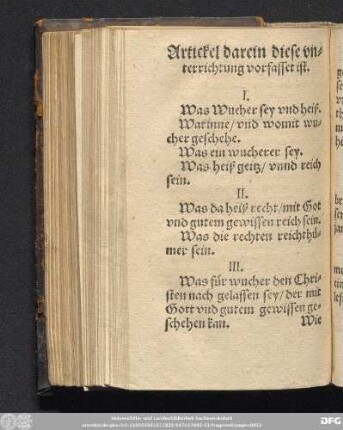 Artickel darein diese vn-
terrichtung vorfasset ist.
I.
Was Wucher sey vnd heiß.
Warinne/ vnd womit wu-
cher geschehe.
Was ein wucherer sey.
Was heiß geitz/ vnnd reich
sein.
II.
Was da heiß recht/ mit Got
vnd gutem gewissen reich sein.
Was die rechten reichthü-
mer sein.
III.
Was für wucher den Chri-
sten nach gelassen sey/ der mit
Gott vnd gutem gewissen ge-
schehen kan. Wie
Universitäts- und Landesbibliothek Sachsen-Anhalt
DFG